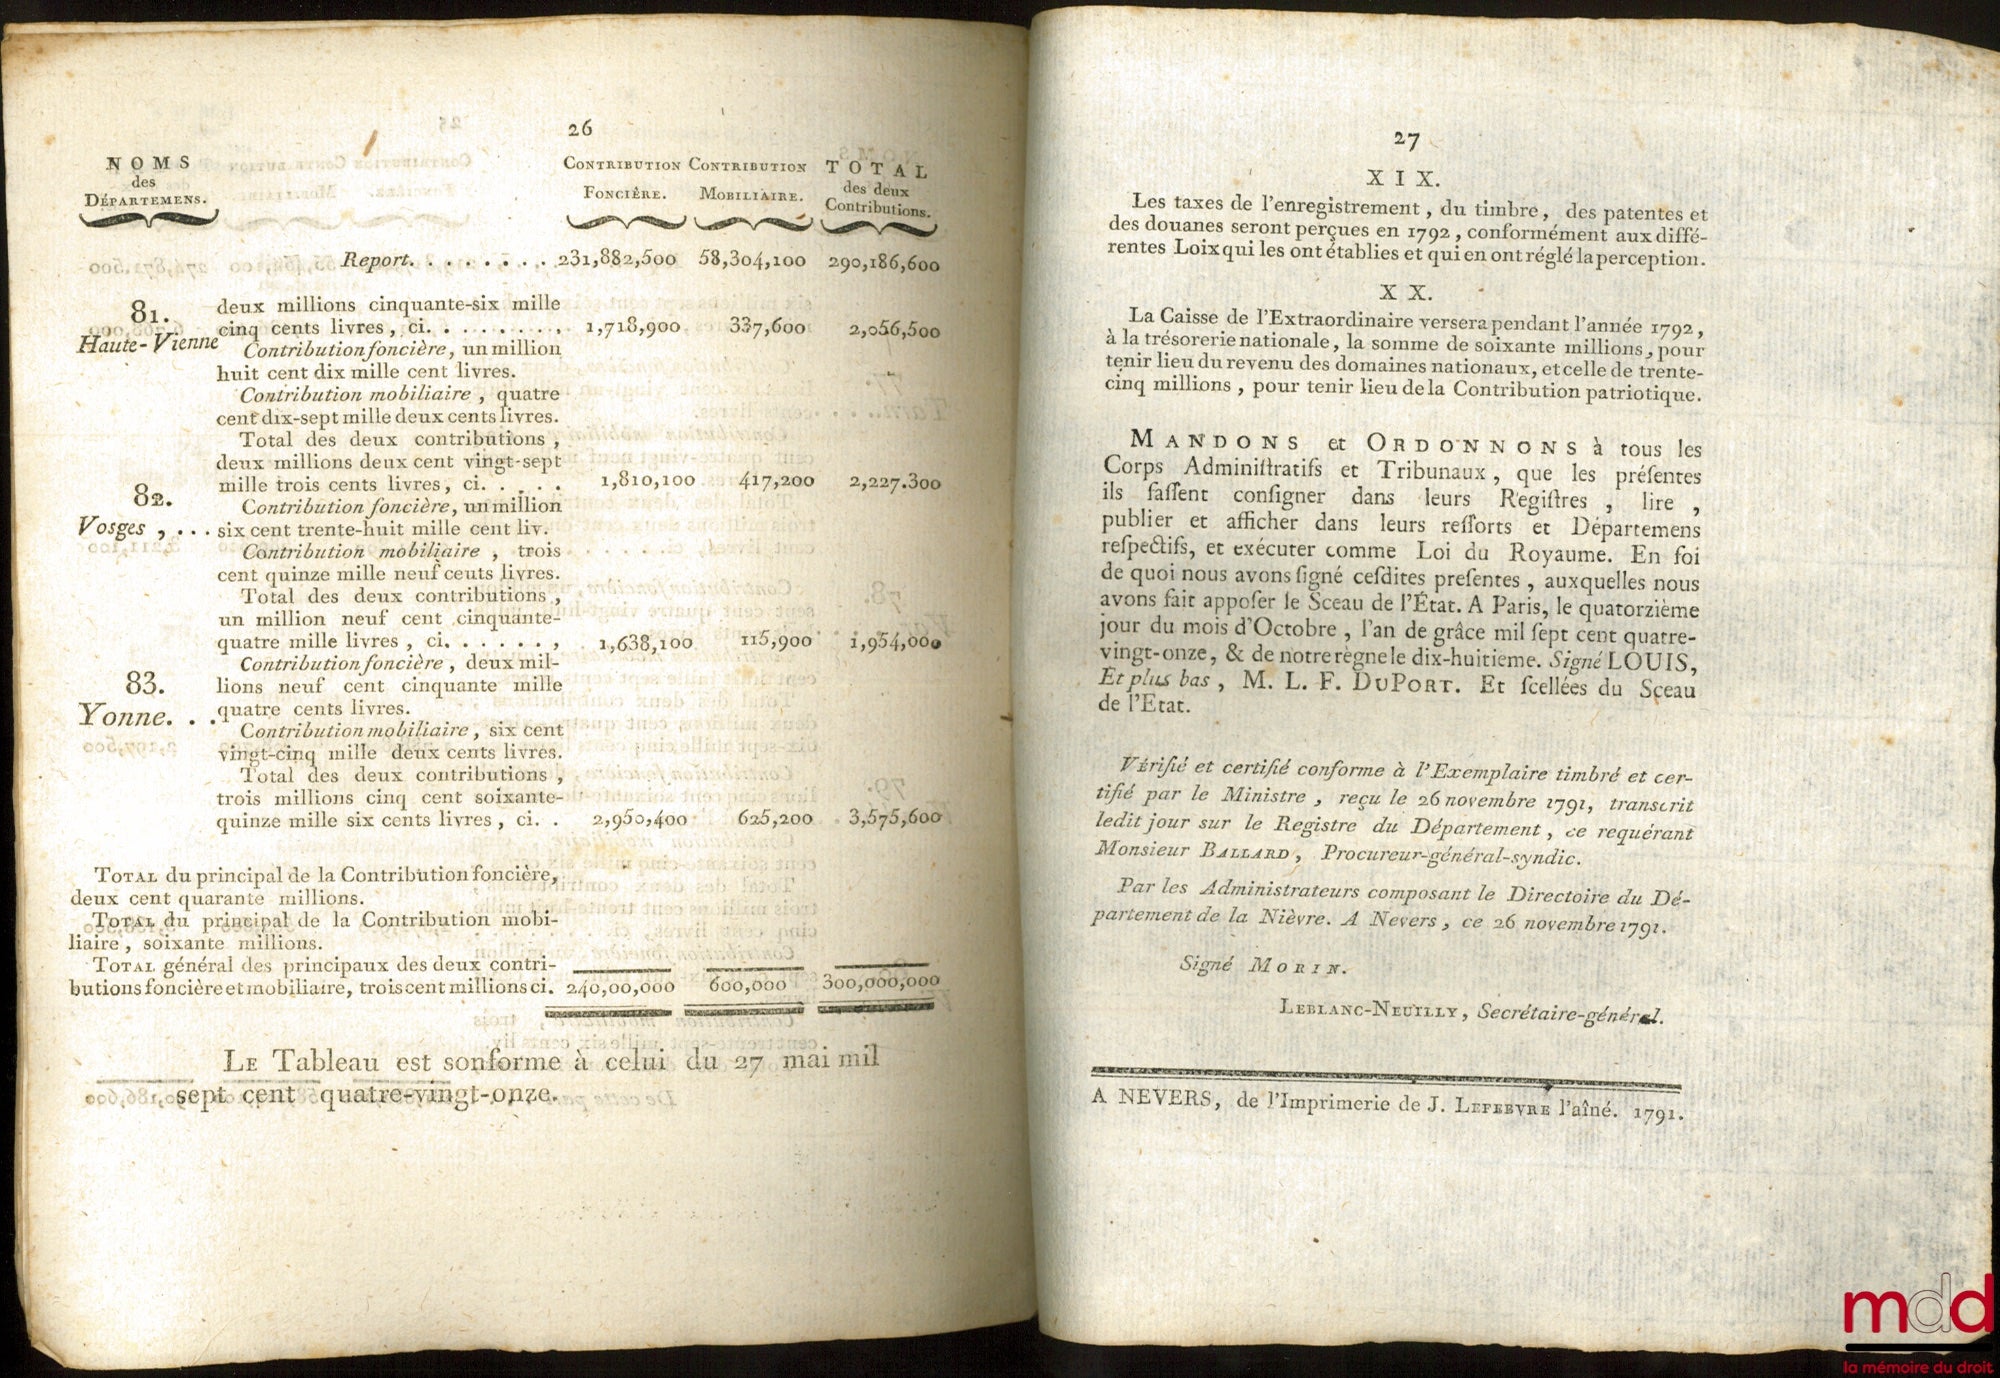 26
NOMS
des
DÉPARTEMENS.
CONTRIBUTION
FONCIÈRE.
CONTRIBUTION
MOBILIAIRE.
TOTAL
des deux
Contributions.
Report. . . . . . . . 231,882,500 58,304,100 290,186,600
81.
Haute-Vienne
deux millions cinquante-six mille
cinq cents livres, ci. . . . . . . . , 1,718,900 337,600 2,056,500
Contribution foncière, un million
huit cent dix mille cent livres.
Contribution mobiliaire, quatre
cent dix-sept mille deux cents livres.
Total des deux contributions,
deux millions deux cent vingt-sept
mille trois cents livres, ci. . . . . 1,810,100 417,200 2,227.300
82.
Vosges , . . .
Contribution foncière, un million
six cent trente-huit mille cent liv.
Contribution mobiliaire, trois
cent quinze mille neuf ceuts livres.
Total des deux contributions,
un million neuf cent cinquante-
quatre mille livres, ci. . . . . . , 1,638,100 115,900 1,954,000
83.
Yonne. . .
Contribution foncière, deux mil-
lions neuf cent cinquante mille
quatre cents livres.
Contribution mobiliaire, six cent
vingt-cinq mille deux cents livres.
Total des deux contributions,
trois millions cinq cent soixante-
quinze mille six cents livres, ci. . 2,950,400 625,200 3,575,600
TOTAL du principal de la Contribution foncière,
deux cent quarante millions.
TOTAL du principal de la Contribution mobi-
liaire, soixante millions.
TOTAL général des principaux des deux contri-
butions foncière et mobiliaire, trois cent millions ci. 240,00,000 600,000 300,000,000
LE Tableau est sonforme à celui du 27 mai mil
sept cent quatre-vingt-onze.
27
XIX.
Les taxes de l'enregistrement, du timbre, des patentes et
des douanes seront perçues en 1792, conformément aux diffé-
rentes Loix qui les ont établies et qui en ont réglé la perception.
XX.
La Caisse de l'Extraordinaire versera pendant l'année 1792,
à la trésorerie nationale, la somme de soixante millions, pour
tenir lieu du revenu des domaines nationaux, et celle de trente-
cinq millions, pour tenir lieu de la Contribution patriotique.
MANDONS et ORDONNONS à tous les
Corps Adminiſtratifs et Tribunaux, que les préſentes
ils faſſent conſigner dans leurs Regiſtres, lire,
publier et afficher dans leurs reſſorts et Départemens
reſpectifs, et exécuter comme Loi du Royaume. En foi
de quoi nous avons ſigné ceſdites preſentes, auxquelles nous
avons fait appoſer le Sceau de l'État. A Paris, le quatorzième
jour du mois d'Octobre, l'an de grâce mil ſept cent quatre-
vingt-onze, & de notre règne le dix-huitieme. Signé LOUIS,
Et plus bas, M. L. F. DUPORT. Et ſcellées du Sceau
de l'Etat.
Vérifié et certifié conforme à l'Exemplaire timbré et cer-
tifié par le Ministre, reçu le 26 novembre 1791, transcrit
ledit jour sur le Registre du Département, ce requérant
Monsieur BALLARD, Procureur-général-syndic.
Par les Administrateurs composant le Directoire du Dé-
partement de la Nièvre. A Nevers, ce 26 novembre 1791.
Signé MORIN.
LEBLANC-NEUILLY, Secrétaire-général.
A NEVERS, de l'Imprimerie de J. LEFEBVRE l'aîné. 1791.
mdd
la mémoire du droit